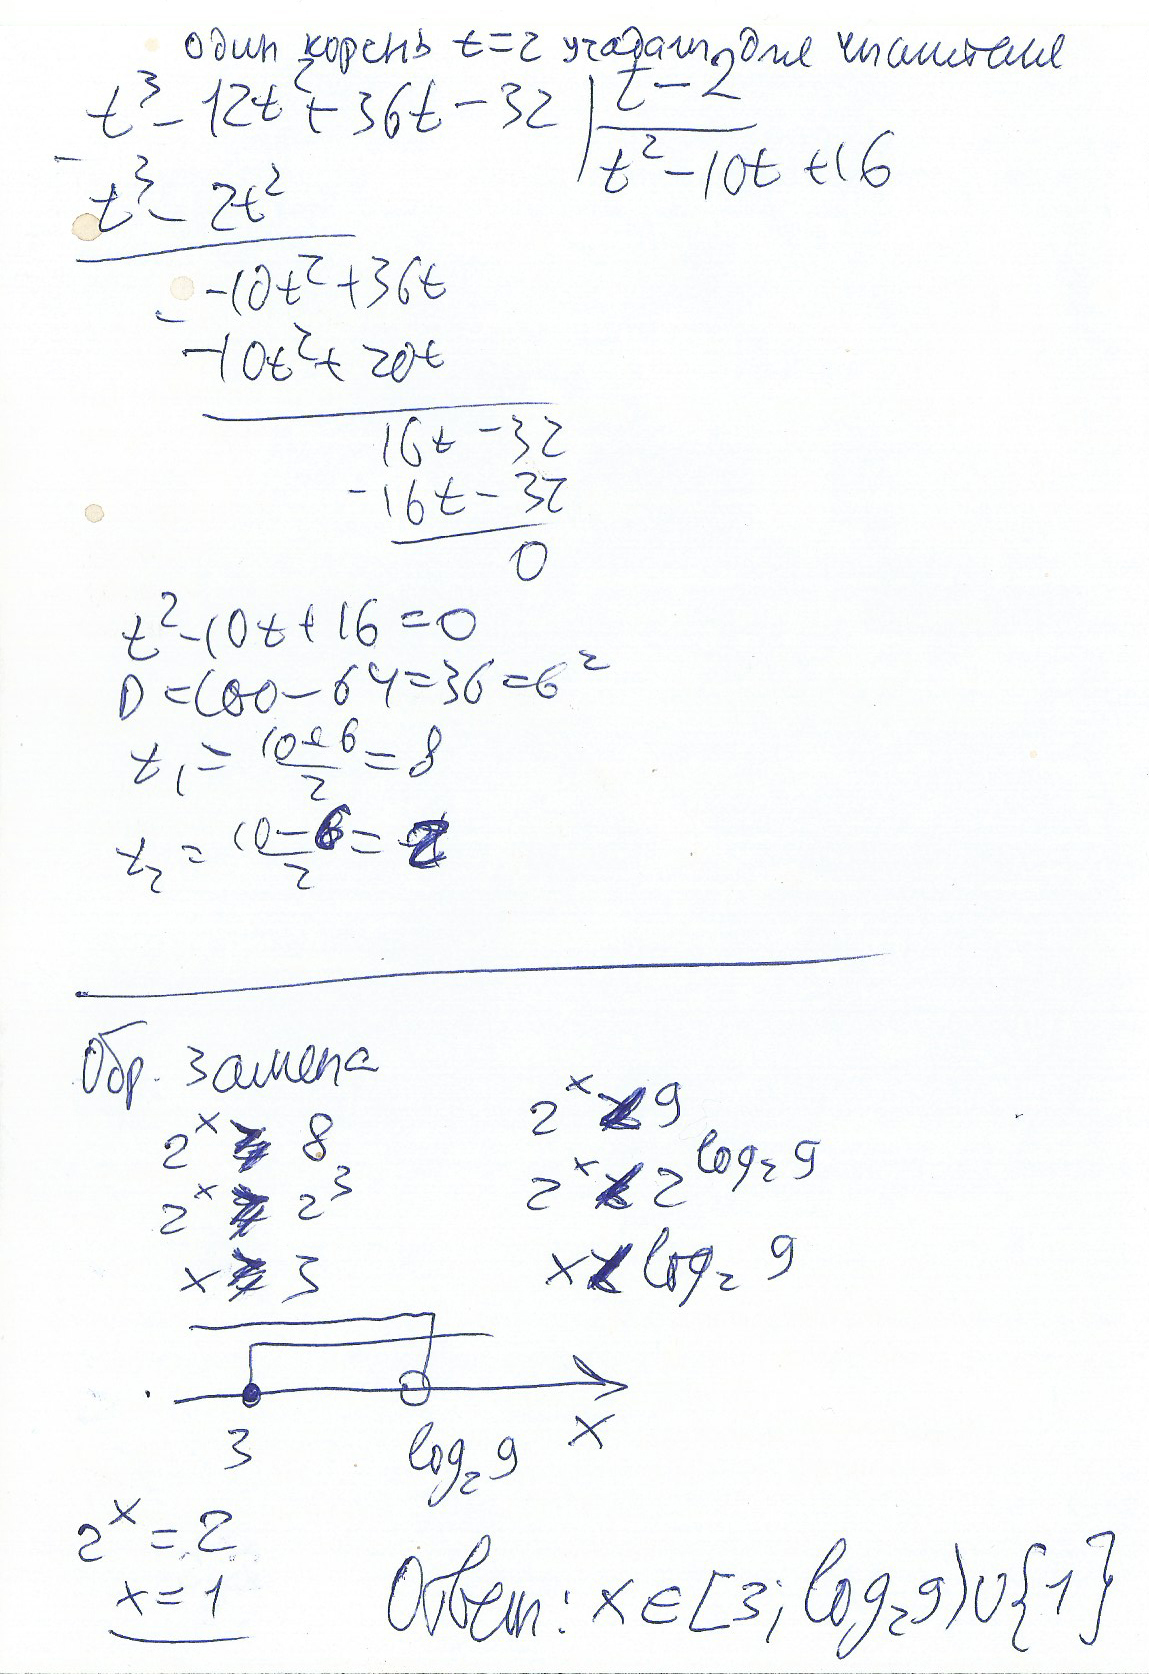 один корень t=2 угадали для числителя
t³ - 12t² + 36t - 32 | t - 2
- t³ - 2t² t² - 10t + 16
-10t² + 36t
- -10t² + 20t
16t - 32
- 16t - 32
0
t² - 10t + 16 = 0
D = 100 - 64 = 36 = 6²
t₁ = (10+6)/2 = 8
t₂ = (10-6)/2 = 2
Обр. замена
2ˣ ≥ 8 2ˣ < 9
2ˣ ≥ 2³ 2ˣ < 2^(log₂9)
x ≥ 3 x < log₂ 9
3 log₂9 x
2ˣ = 2
x = 1
Ответ: x ∈ [3; log₂9) ∪ {1}